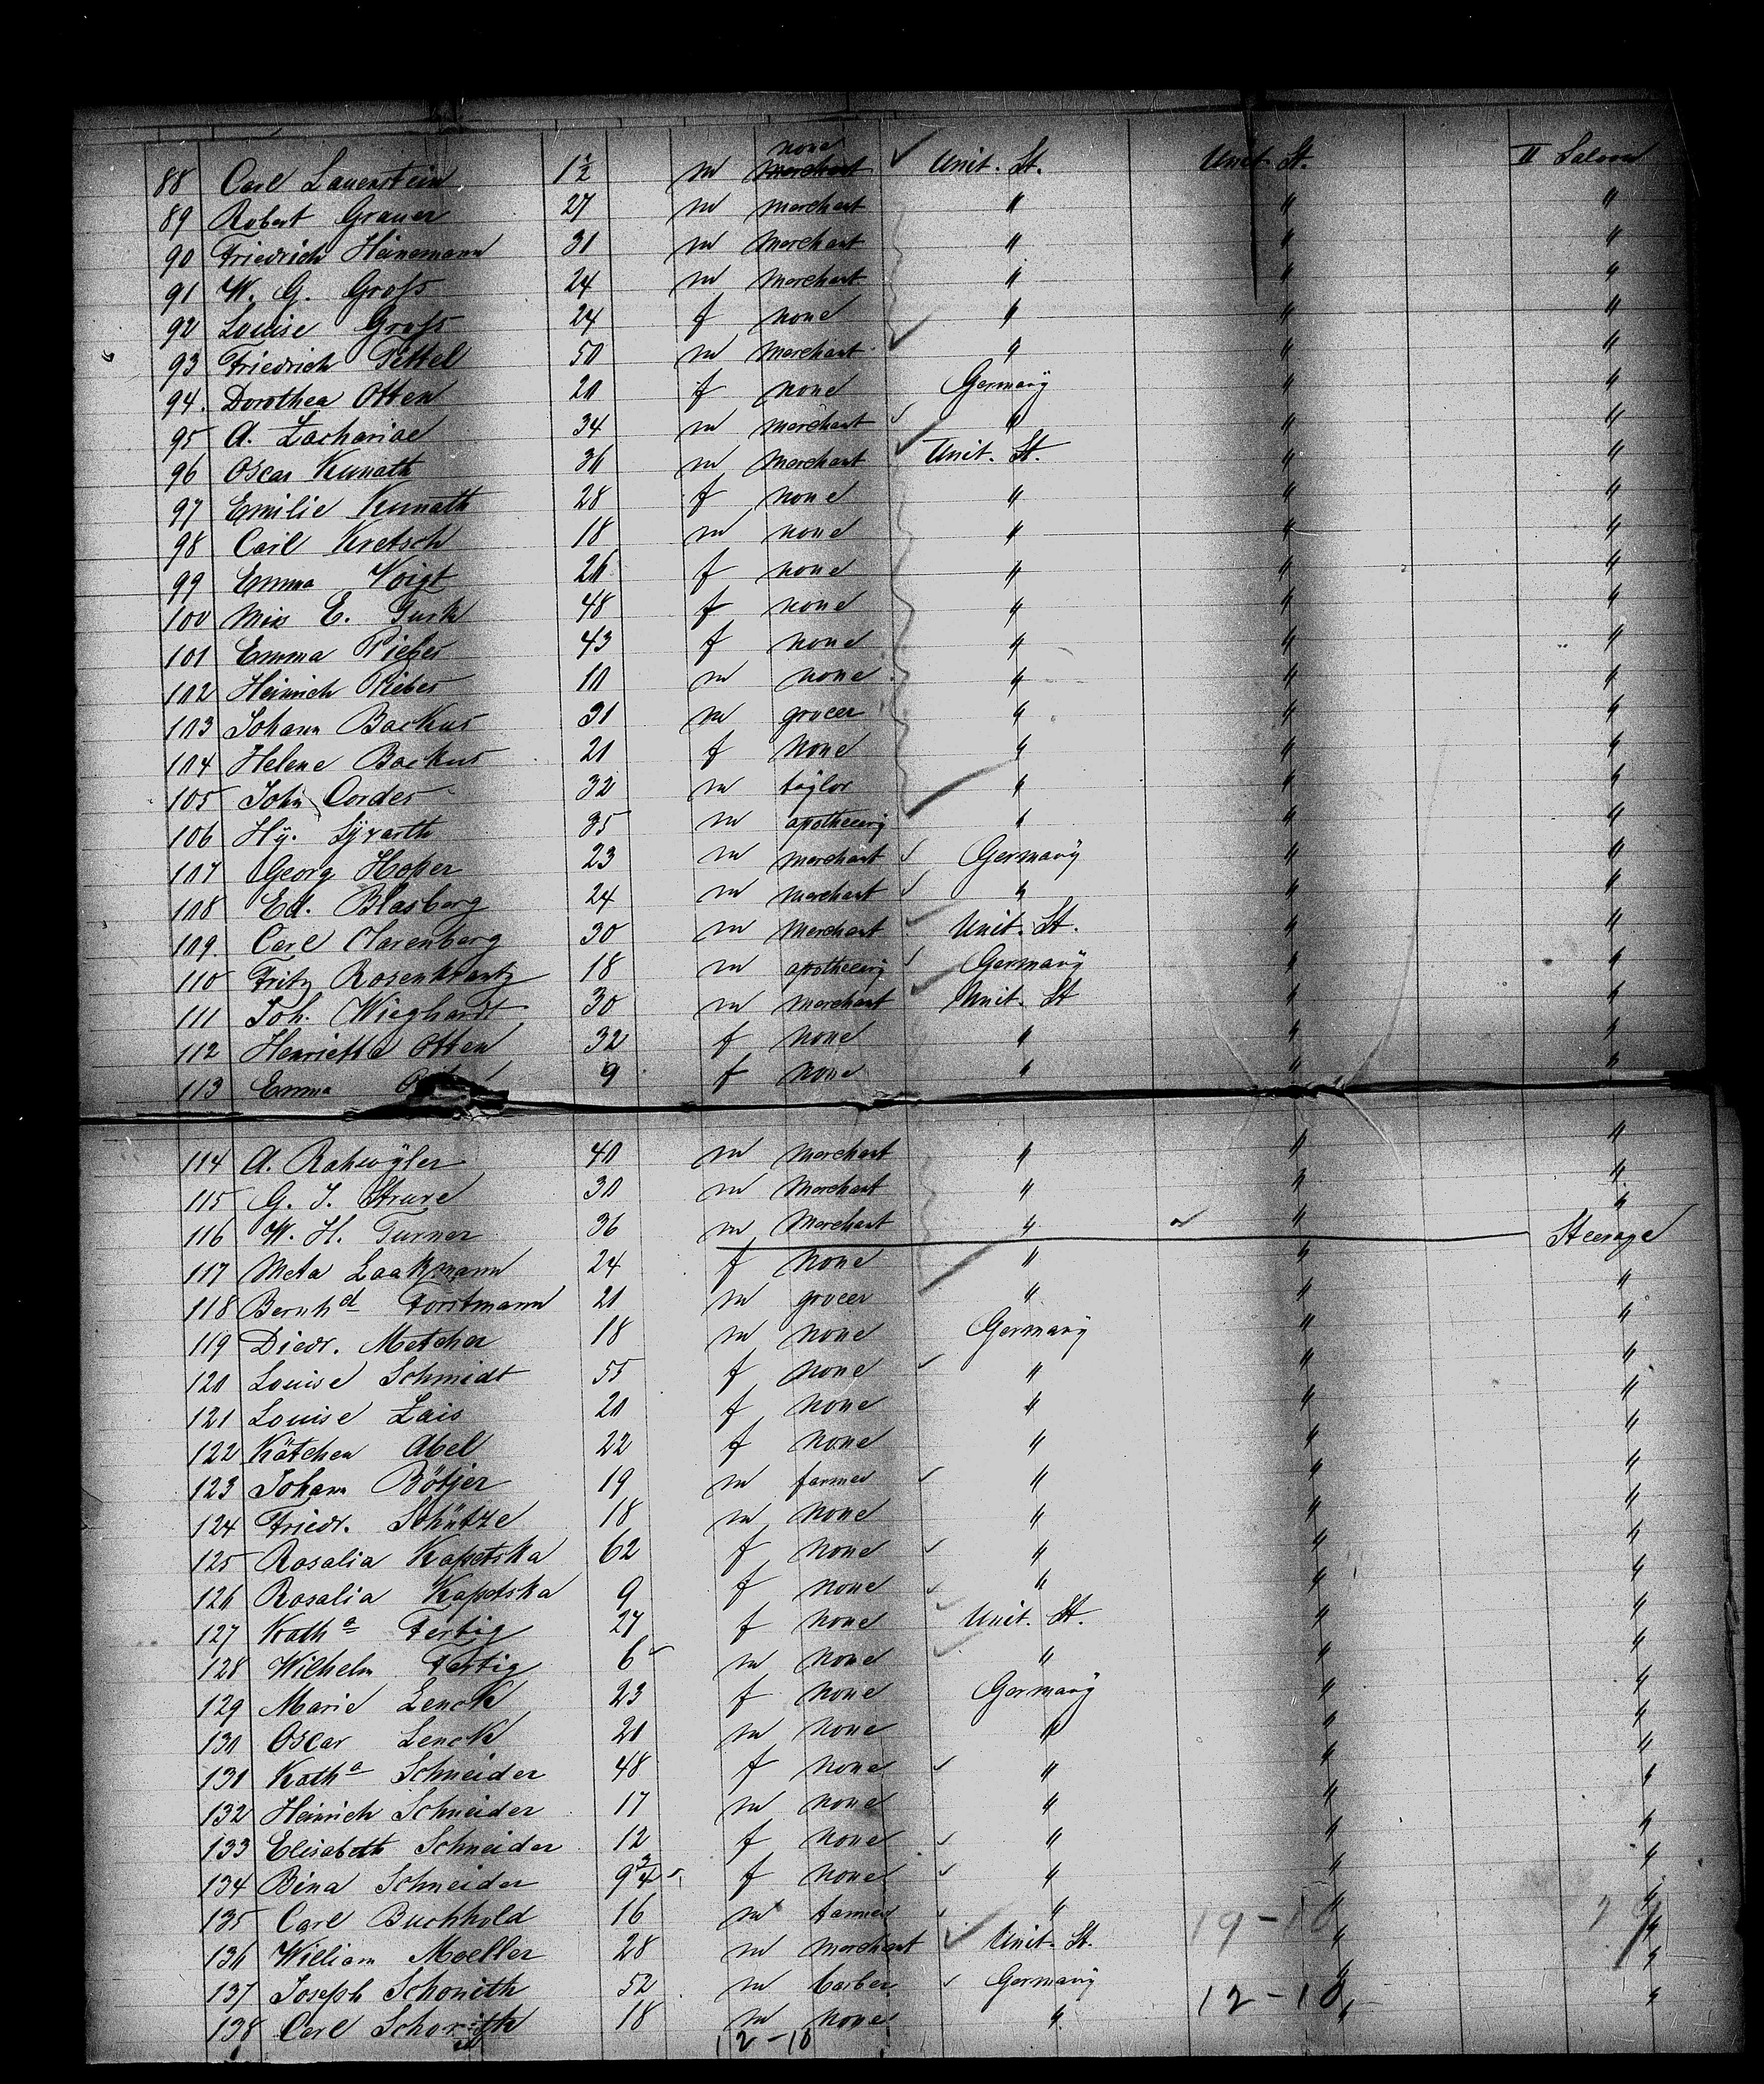 88 Carl Lauenstein 1½ m none merchant Unit. St. Unit. St. II Saloon
89 Robert Grauer 27 m merchant " " "
90 Friedrich Heinemann 31 m merchant " " "
91 W. G. Gross 24 m merchant " " "
92 Louise Gross 24 f none " " "
93 Friedrich Tittel 50 m merchant " " "
94. Dorothea Otten 20 f none Germany " "
95 A. Zachariae 34 m merchant " " "
96 Oscar Kunath 36 m merchant Unit. St. " "
97 Emilie Kunath 28 f none " " "
98 Carl Kretsch 18 m none " " "
99 Emma Voigt 26 f none " " "
100 Miss E. Gurk 48 f none " " "
101 Emma Pieber 43 f none " " "
102 Heinrich Pieber 10 m none " " "
103 Johann Backus 31 m grocer " " "
104 Helene Backus 21 f none " " "
105 John Cordes 32 m taylor " " "
106 Hy. 35 m apothecary " " "
107 Georg Hoper 23 m merchant Germany " "
108 Ed. Blasberg 24 m merchant " " "
109. Carl Clarenberg 30 m merchant Unit. St. " "
110 Fritz Rosenkrantz 18 m apothecary Germany " "
111 Joh. Wieghardt 30 m merchant Unit. St " "
112 Henriette Otten 32 f none " " "
113 Emma 9 f none " " "
114 A. Rahwyler 40 m merchant " " "
115 G. J. Struve 30 m merchant " " "
116 W. H. Turner 36 m merchant " " "
117 Meta Laakmann 24 f none " " Steerage
118 Bernhd Forstmann 21 m grocer " " "
119 Diedr. Metcher 18 m none Germany " "
120 Louise Schmidt 55 f none " " "
121 Louise Zais 20 f none " " "
122 Kätchen Abel 22 f none " " "
123 Johann Bötjer 19 m farmer " " "
124 Friedr. Schütze 18 m none " " "
125 Rosalia Kapetska 62 f none " " "
126 Rosalia Kapetska 9 f none " " "
127 Katha Fertig 27 f none Unit. St. " "
128 Wilhelm Fertig 6 m none " " "
129 Marie Lenck 23 f none Germany " "
130 Oscar Lenck 20 m none " " "
131 Katha Schneider 48 f none " " "
132 Heinrich Schneider 17 m none " " "
133 Elisabeth Schneider 12 f none " " "
134 Bina Schneider 9¾ f none " " "
135 Carl Buchhold 16 m farmer " " "
19-10
136 William Moeller 28 m merchant Unit. St. " "
137 Joseph Schonith 52 m barber Germany " "
12-10
138 Carl 18 m none " " "
12-10